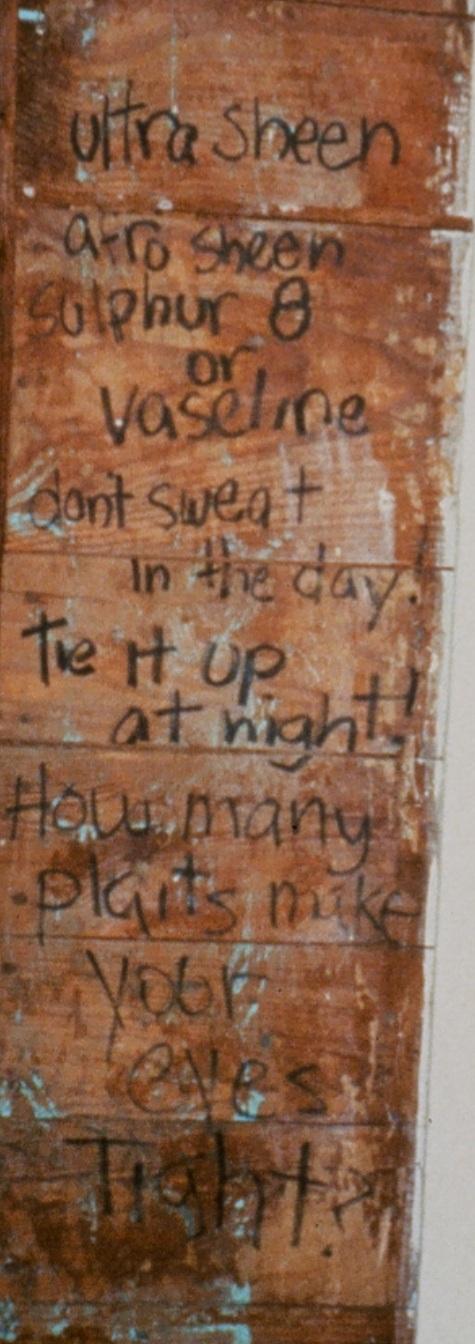 ultra sheen
afro sheen
sulphur 8
or
vaseline
don't sweat
in the day!
Tie it up
at night!
How many
plaits make
your
eyes
Tight?